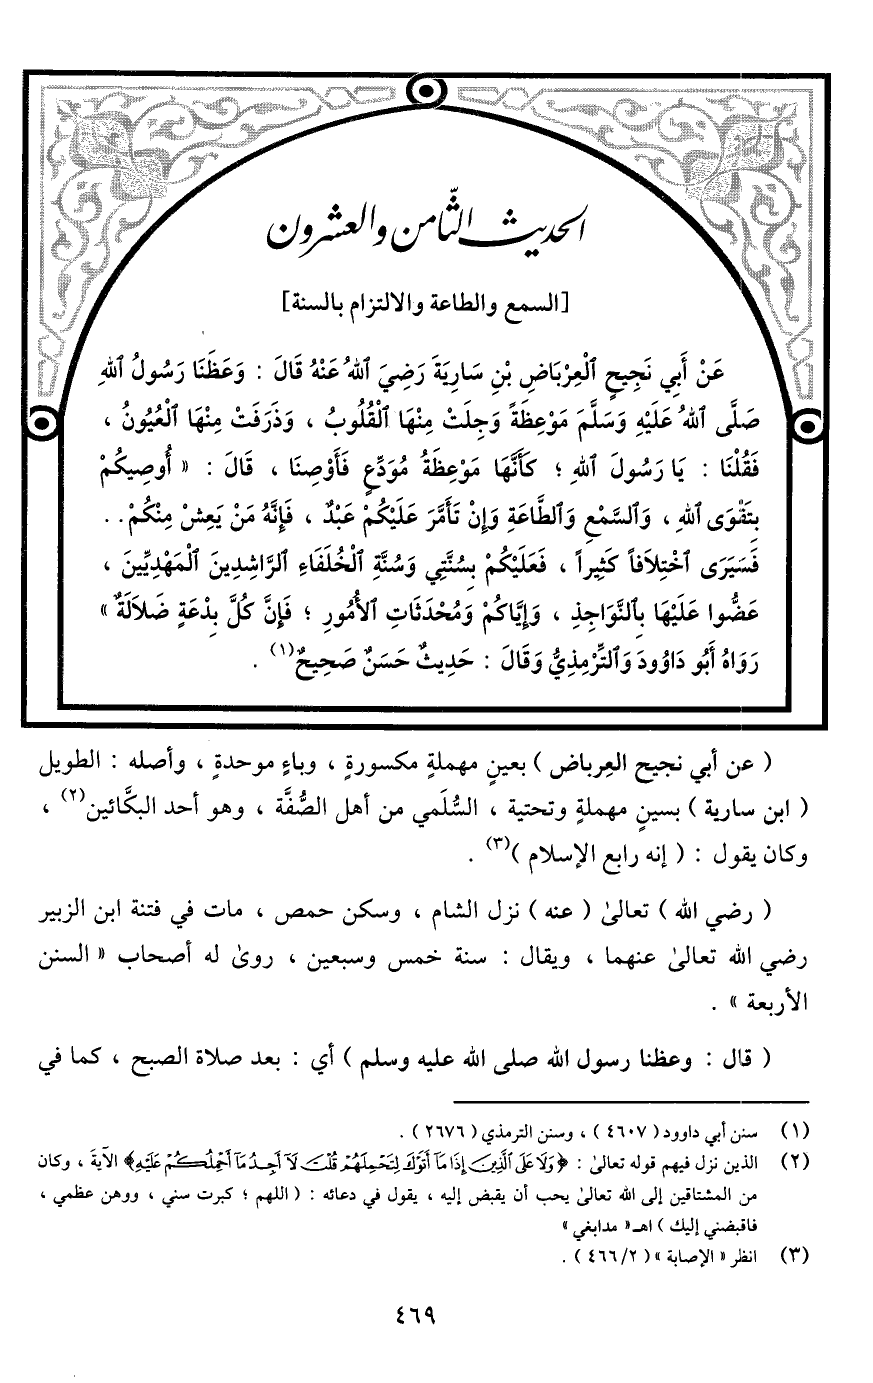 الحديث الثّامن والعشرون
[السمع والطاعة والالتزام بالسنة]
عَنْ أَبِي نَجِيحٍ ٱلْعِرْبَاضِ بْنِ سَارِيَةَ رَضِيَ ٱللهُ عَنْهُ قَالَ : وَعَظَنَا رَسُولُ ٱللهِ
صَلَّى ٱللهُ عَلَيْهِ وَسَلَّمَ مَوْعِظَةً وَجِلَتْ مِنْهَا ٱلْقُلُوبُ ، وَذَرَفَتْ مِنْهَا ٱلْعُيُونُ ،
فَقُلْنَا : يَا رَسُولَ ٱللهِ ؛ كَأَنَّهَا مَوْعِظَةُ مُوَدِّعٍ فَأَوْصِنَا ، قَالَ : « أُوصِيكُمْ
بِتَقْوَى ٱللهِ ، وَٱلسَّمْعِ وَٱلطَّاعَةِ وَإِنْ تَأَمَّرَ عَلَيْكُمْ عَبْدٌ ، فَإِنَّهُ مَنْ يَعِشْ مِنْكُمْ . .
فَسَيَرَى ٱخْتِلاَفاً كَثِيراً ، فَعَلَيْكُمْ بِسُنَّتِي وَسُنَّةِ ٱلْخُلَفَاءِ ٱلرَّاشِدِينَ ٱلْمَهْدِيِّينَ ،
عَضُّوا عَلَيْهَا بِٱلنَّوَاجِذِ ، وَإِيَّاكُمْ وَمُحْدَثَاتِ ٱلأُمُورِ ؛ فَإِنَّ كُلَّ بِدْعَةٍ ضَلاَلَةٌ »
رَوَاهُ أَبُو دَاوُودَ وَٱلتِّرْمِذِيُّ وَقَالَ : حَدِيثٌ حَسَنٌ صَحِيحٌ(١) .
( عن أبي نجيح العِرباض ) بعينٍ مهملةٍ مكسورةٍ ، وباءٍ موحدةٍ ، وأصله : الطويل
( ابن سارية ) بسينٍ مهملةٍ وتحتية ، السُّلَمي من أهل الصُّفَّة ، وهو أحد البكَّائين(٢) ،
وكان يقول : ( إنه رابع الإسلام )(٣) .
( رضي الله ) تعالىٰ ( عنه ) نزل الشام ، وسكن حمص ، مات في فتنة ابن الزبير
رضي الله تعالىٰ عنهما ، ويقال : سنة خمس وسبعين ، روىٰ له أصحاب « السنن
الأربعة » .
( قال : وعظنا رسول الله صلى الله عليه وسلم ) أي : بعد صلاة الصبح ، كما في
(١) سنن أبي داوود ( ٤٦٠٧ ) ، وسنن الترمذي ( ٢٦٧٦ ) .
(٢) الذين نزل فيهم قوله تعالىٰ : ﴿وَلَا عَلَى ٱلَّذِينَ إِذَا مَآ أَتَوْكَ لِتَحْمِلَهُمْ قُلْتَ لَآ أَجِدُ مَآ أَحْمِلُكُمْ عَلَيْهِ﴾ الآيةَ ، وكان
من المشتاقين إلى الله تعالىٰ يحب أن يقبض إليه ، يقول في دعائه : ( اللهم ؛ كبرت سني ، ووهن عظمي ،
فاقبضني إليك ) اهـ « مدابغي »
(٣) انظر « الإصابة » ( ٢/ ٤٦٦ ) .
٤٦٩